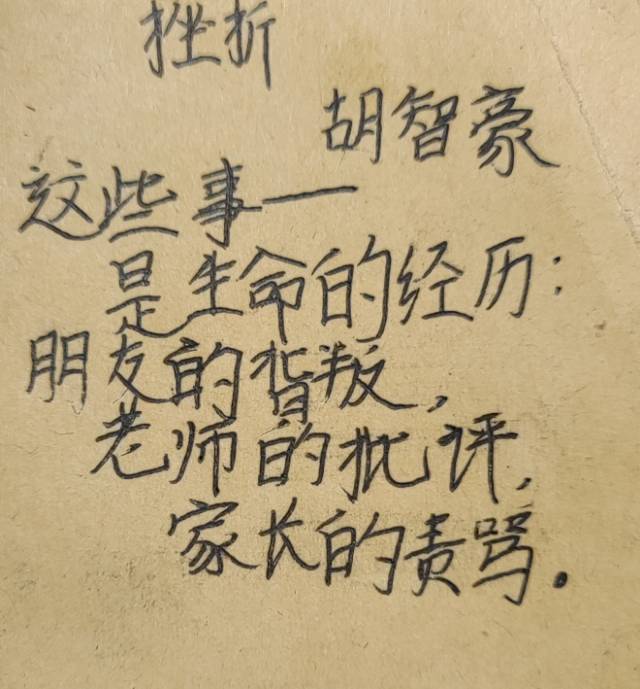 挫折
胡智豪
这些事——
是生命的经历：
朋友的背叛，
老师的批评，
家长的责骂。